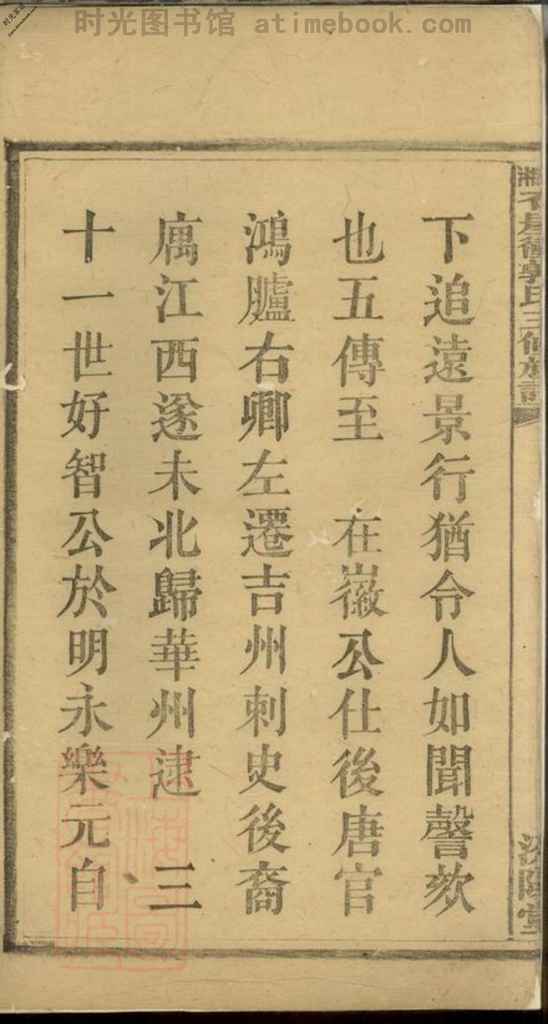 时光图书馆 atimebook.com
下追遠景行猶令人如聞謦欬
也五傳至 在徽公仕後唐官
鴻臚右卿左遷吉州刺史後裔
寓江西遂未北歸華州逮 三
十一世好智公於明永樂元自